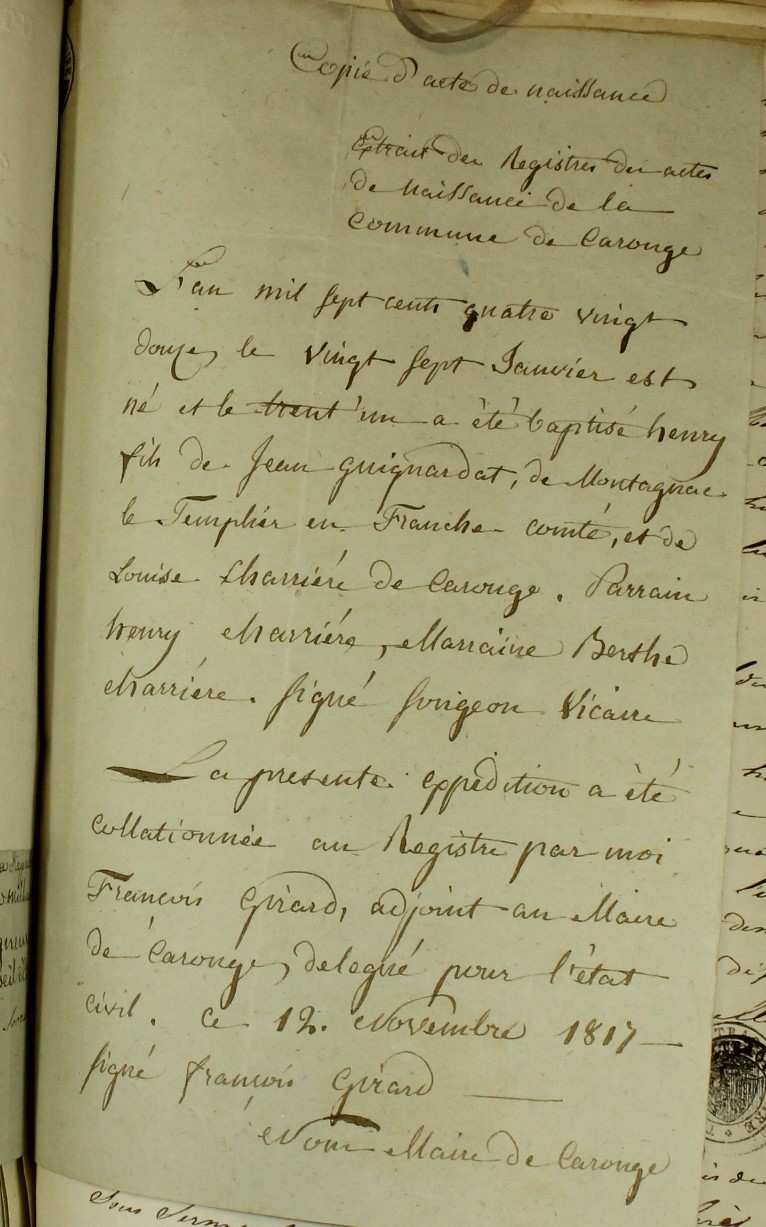 Copie d'acte de naissance
Extrait des Registres des actes
de naissance de la
Commune de Carouge
L'an mil sept cents quatre vingt
douze, le vingt sept Janvier est
né et le trent'un a èté baptisé henry
fils de Jean guignardat, de Montagnac
le Templier en Franche comté, et de
Louise Charriére de Carouge. Parrain
henry charriére, Marraine Berthe
charriére. signé songeon Vicaire
La presente expédition a èté
collationnée au Registre par moi
François Girard, adjoint au Maire
de Carouge, delegué pour l'état
civil. ce 12. Novembre 1817
signé françois Girard
Nous Maire de Carouge